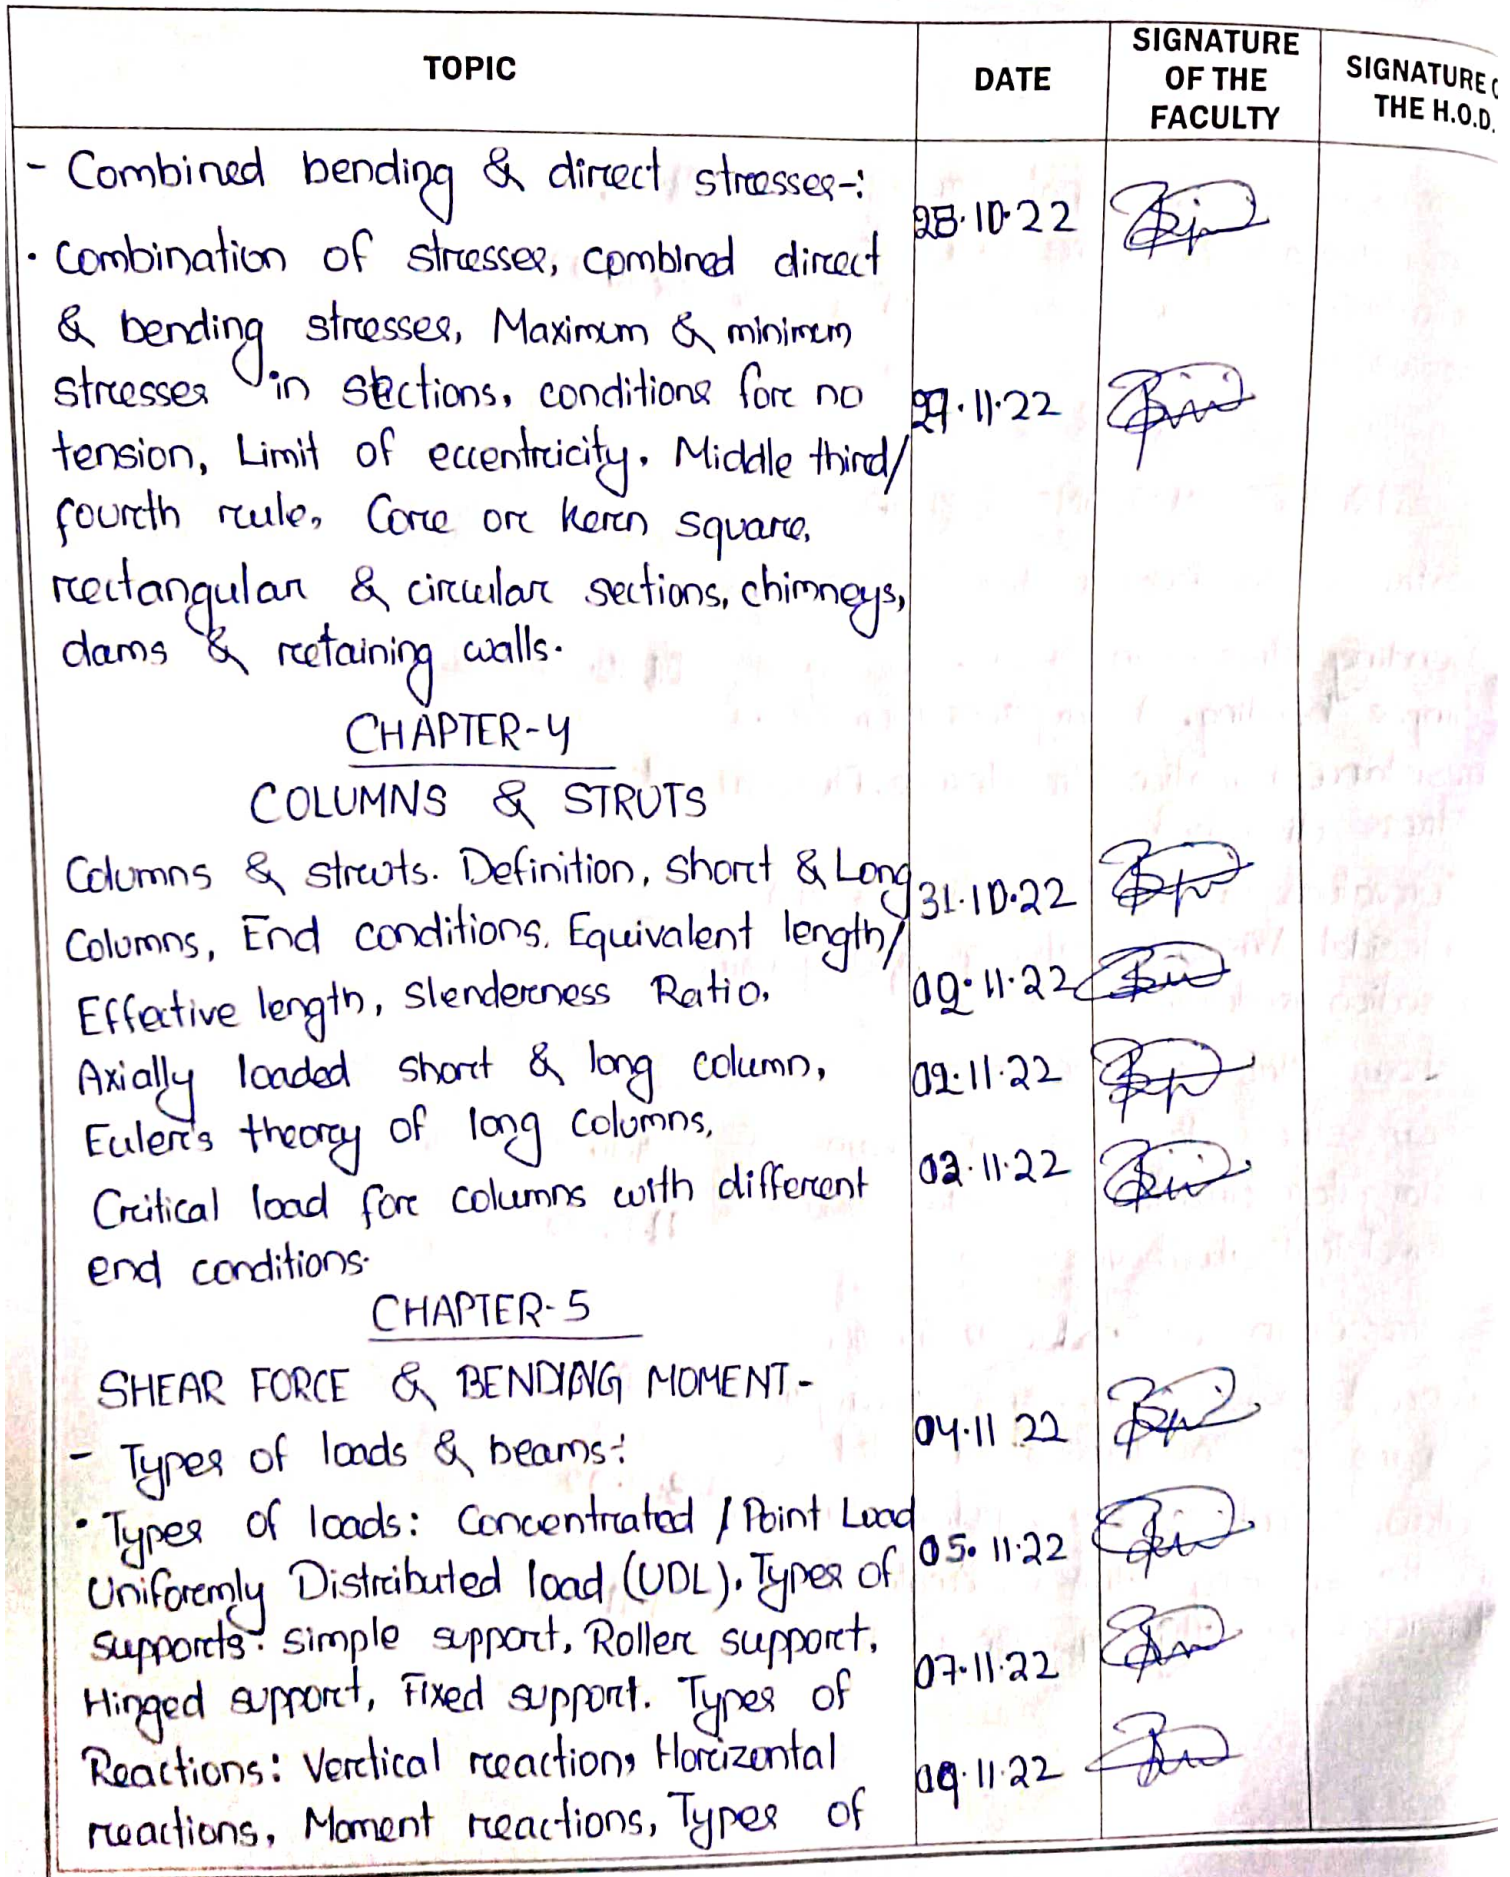 TOPIC
DATE
SIGNATURE
OF THE
FACULTY
SIGNATURE
THE H.O.D.
- Combined bending & direct stresses-:
28.10.22
• Combination of stresses, combined direct
& bending stresses, Maximum & minimum
stresses in sections, conditions for no
.11.22
tension, Limit of eccentricity, Middle third/
fourth rule, Core or kern square,
rectangular & circular sections, chimneys,
dams & retaining walls.
CHAPTER-4
COLUMNS & STRUTS
Columns & struts. Definition, short & Long
31.10.22
Columns, End conditions. Equivalent length/
Effective length, Slenderness Ratio.
02.11.22
Axially loaded short & long column,
02.11.22
Euler's theory of long columns,
Critical load for columns with different
03.11.22
end conditions.
CHAPTER-5
SHEAR FORCE & BENDING MOMENT-
- Types of loads & beams-:
04.11 22
• Types of loads: Concentrated / Point Load
Uniformly Distributed load (UDL), Types of
05.11.22
supports: simple support, Roller support,
Hinged support, Fixed support. Types of
07.11.22
Reactions: Vertical reaction, Horizontal
reactions, Moment reactions, Types of
09.11.22